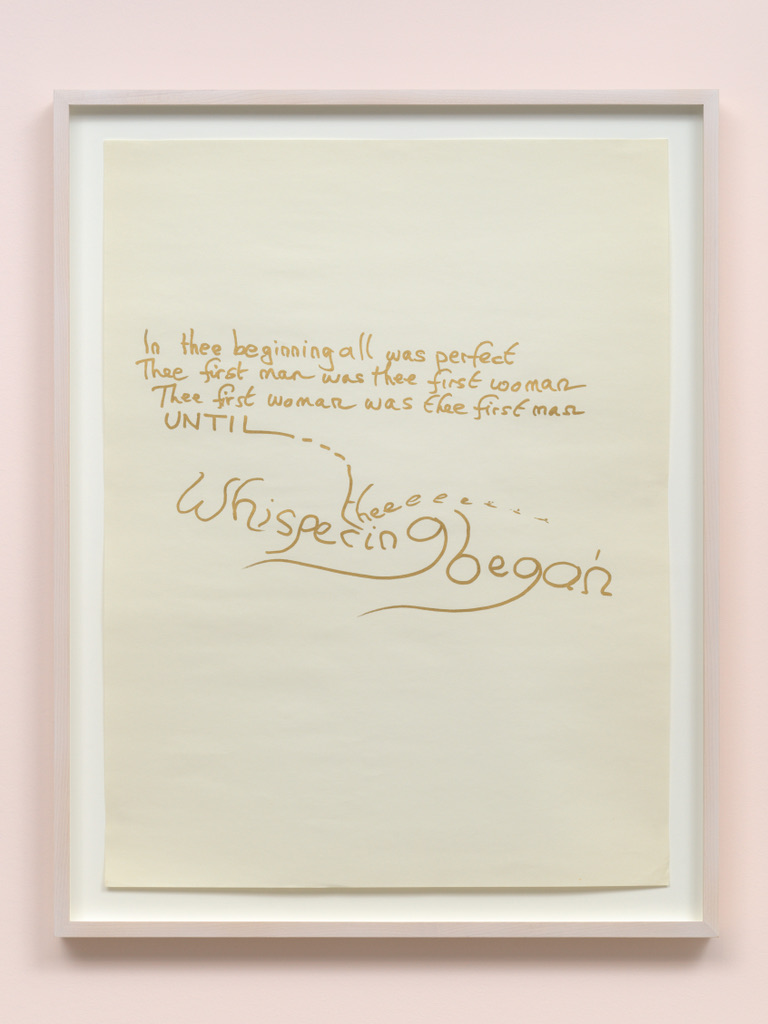 In thee beginning all was perfect
Thee first man was thee first woman
Thee first woman was thee first man
UNTIL
theeeeeeee
Whispering began